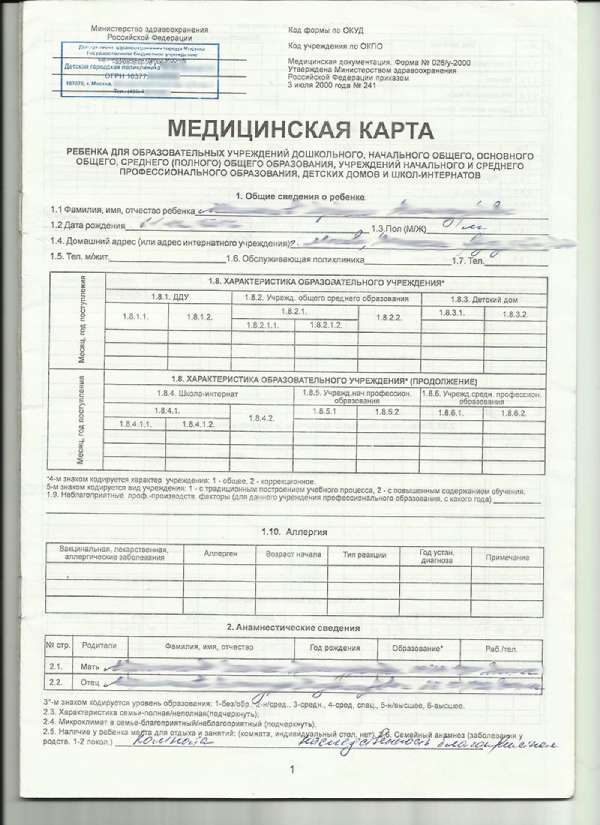 Министерство здравоохранения
Российской Федерации
Код формы по ОКУД
Код учреждения по ОКПО
Медицинская документация. Форма № 026/у-2000
Утверждена Министерством здравоохранения
Российской Федерации приказом
3 июля 2000 года № 241
Государственное бюджетное учреждение
Детская городская поликлиника
ОГРН 10377
г. Москва,
МЕДИЦИНСКАЯ КАРТА
РЕБЕНКА ДЛЯ ОБРАЗОВАТЕЛЬНЫХ УЧРЕЖДЕНИЙ ДОШКОЛЬНОГО, НАЧАЛЬНОГО ОБЩЕГО, ОСНОВНОГО
ОБЩЕГО, СРЕДНЕГО (ПОЛНОГО) ОБЩЕГО ОБРАЗОВАНИЯ, УЧРЕЖДЕНИЙ НАЧАЛЬНОГО И СРЕДНЕГО
ПРОФЕССИОНАЛЬНОГО ОБРАЗОВАНИЯ, ДЕТСКИХ ДОМОВ И ШКОЛ-ИНТЕРНАТОВ
1. Общие сведения о ребенке
1.1 Фамилия, имя, отчество ребенка
1.2 Дата рождения 1.3.Пол (М/Ж)
1.4. Домашний адрес (или адрес интернатного учреждения)
1.5. Тел. м/жит. 1.6. Обслуживающая поликлиника 1.7. Тел.
Месяц, год поступления
1.8. ХАРАКТЕРИСТИКА ОБРАЗОВАТЕЛЬНОГО УЧРЕЖДЕНИЯ*
1.8.1. ДДУ 1.8.2. Учрежд. общего среднего образования 1.8.3. Детский дом
1.8.1.1. 1.8.1.2. 1.8.2.1. 1.8.2.2. 1.8.3.1. 1.8.3.2.
1.8.2.1.1. 1.8.2.1.2.
Месяц, год поступления
1.8. ХАРАКТЕРИСТИКА ОБРАЗОВАТЕЛЬНОГО УЧРЕЖДЕНИЯ* (ПРОДОЛЖЕНИЕ)
1.8.4. Школа-интернат 1.8.5. Учрежд.нач профессион. образования 1.8.6. Учрежд.средн. профессион. образования
1.8.4.1. 1.8.4.2. 1.8.5.1 1.8.5.2 1.8.6.1. 1.8.6.2.
1.8.4.1.1. 1.8.4.1.2.
*4-м знаком кодируется характер учреждения: 1 - общее, 2 - коррекционное.
5-м знаком кодируется вид учреждения: 1 - с традиционным построением учебного процесса, 2 - с повышенным содержанием обучения.
1.9. Неблагоприятные проф.-производств. факторы (для данного учреждения профессионального образования, с какого года)
1.10. Аллергия
Вакцинальная, лекарственная, аллергические заболевания Аллерген Возраст начала Тип реакции Год устан. диагноза Примечание
2. Анамнестические сведения
№ стр. Родители Фамилия, имя, отчество Год рождения Образование* Раб./тел.
2.1. Мать
2.2. Отец
3*-м знаком кодируется уровень образования: 1-без/обр., 2-н/сред., 3-средн., 4-сред. спец., 5-н/высшее, 6-высшее.
2.3. Характеристика семьи-полная/неполная(подчеркнуть);
2.4. Микроклимат в семье-благоприятный/неблагоприятный (подчеркнуть).
2.5. Наличие у ребенка места для отдыха и занятий: (комната, индивидуальный стол, нет) 2.6. Семейный анамнез (заболевания у
родств. 1-2 покол.) комната наследственность благоприятная
1